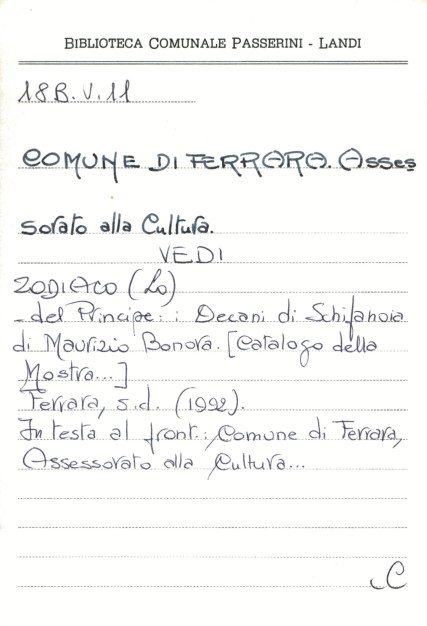 BIBLIOTECA COMUNALE PASSERINI - LANDI
18B.V.11
COMUNE DI FERRARA. Asses
sorato alla Cultura.
VEDI
ZODIACO (Lo)
- del Principe: i Decani di Schifanoia
di Maurizio Bonora. [Catalogo della
Mostra...]
Ferrara, s.d. (1992).
In testa al front.: Comune di Ferrara,
Assessorato alla Cultura...
C